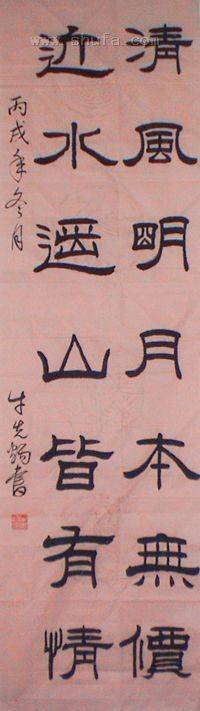 清風明月本無價
近水遠山皆有情
丙戌年冬月
牛先書
www.shufa.com